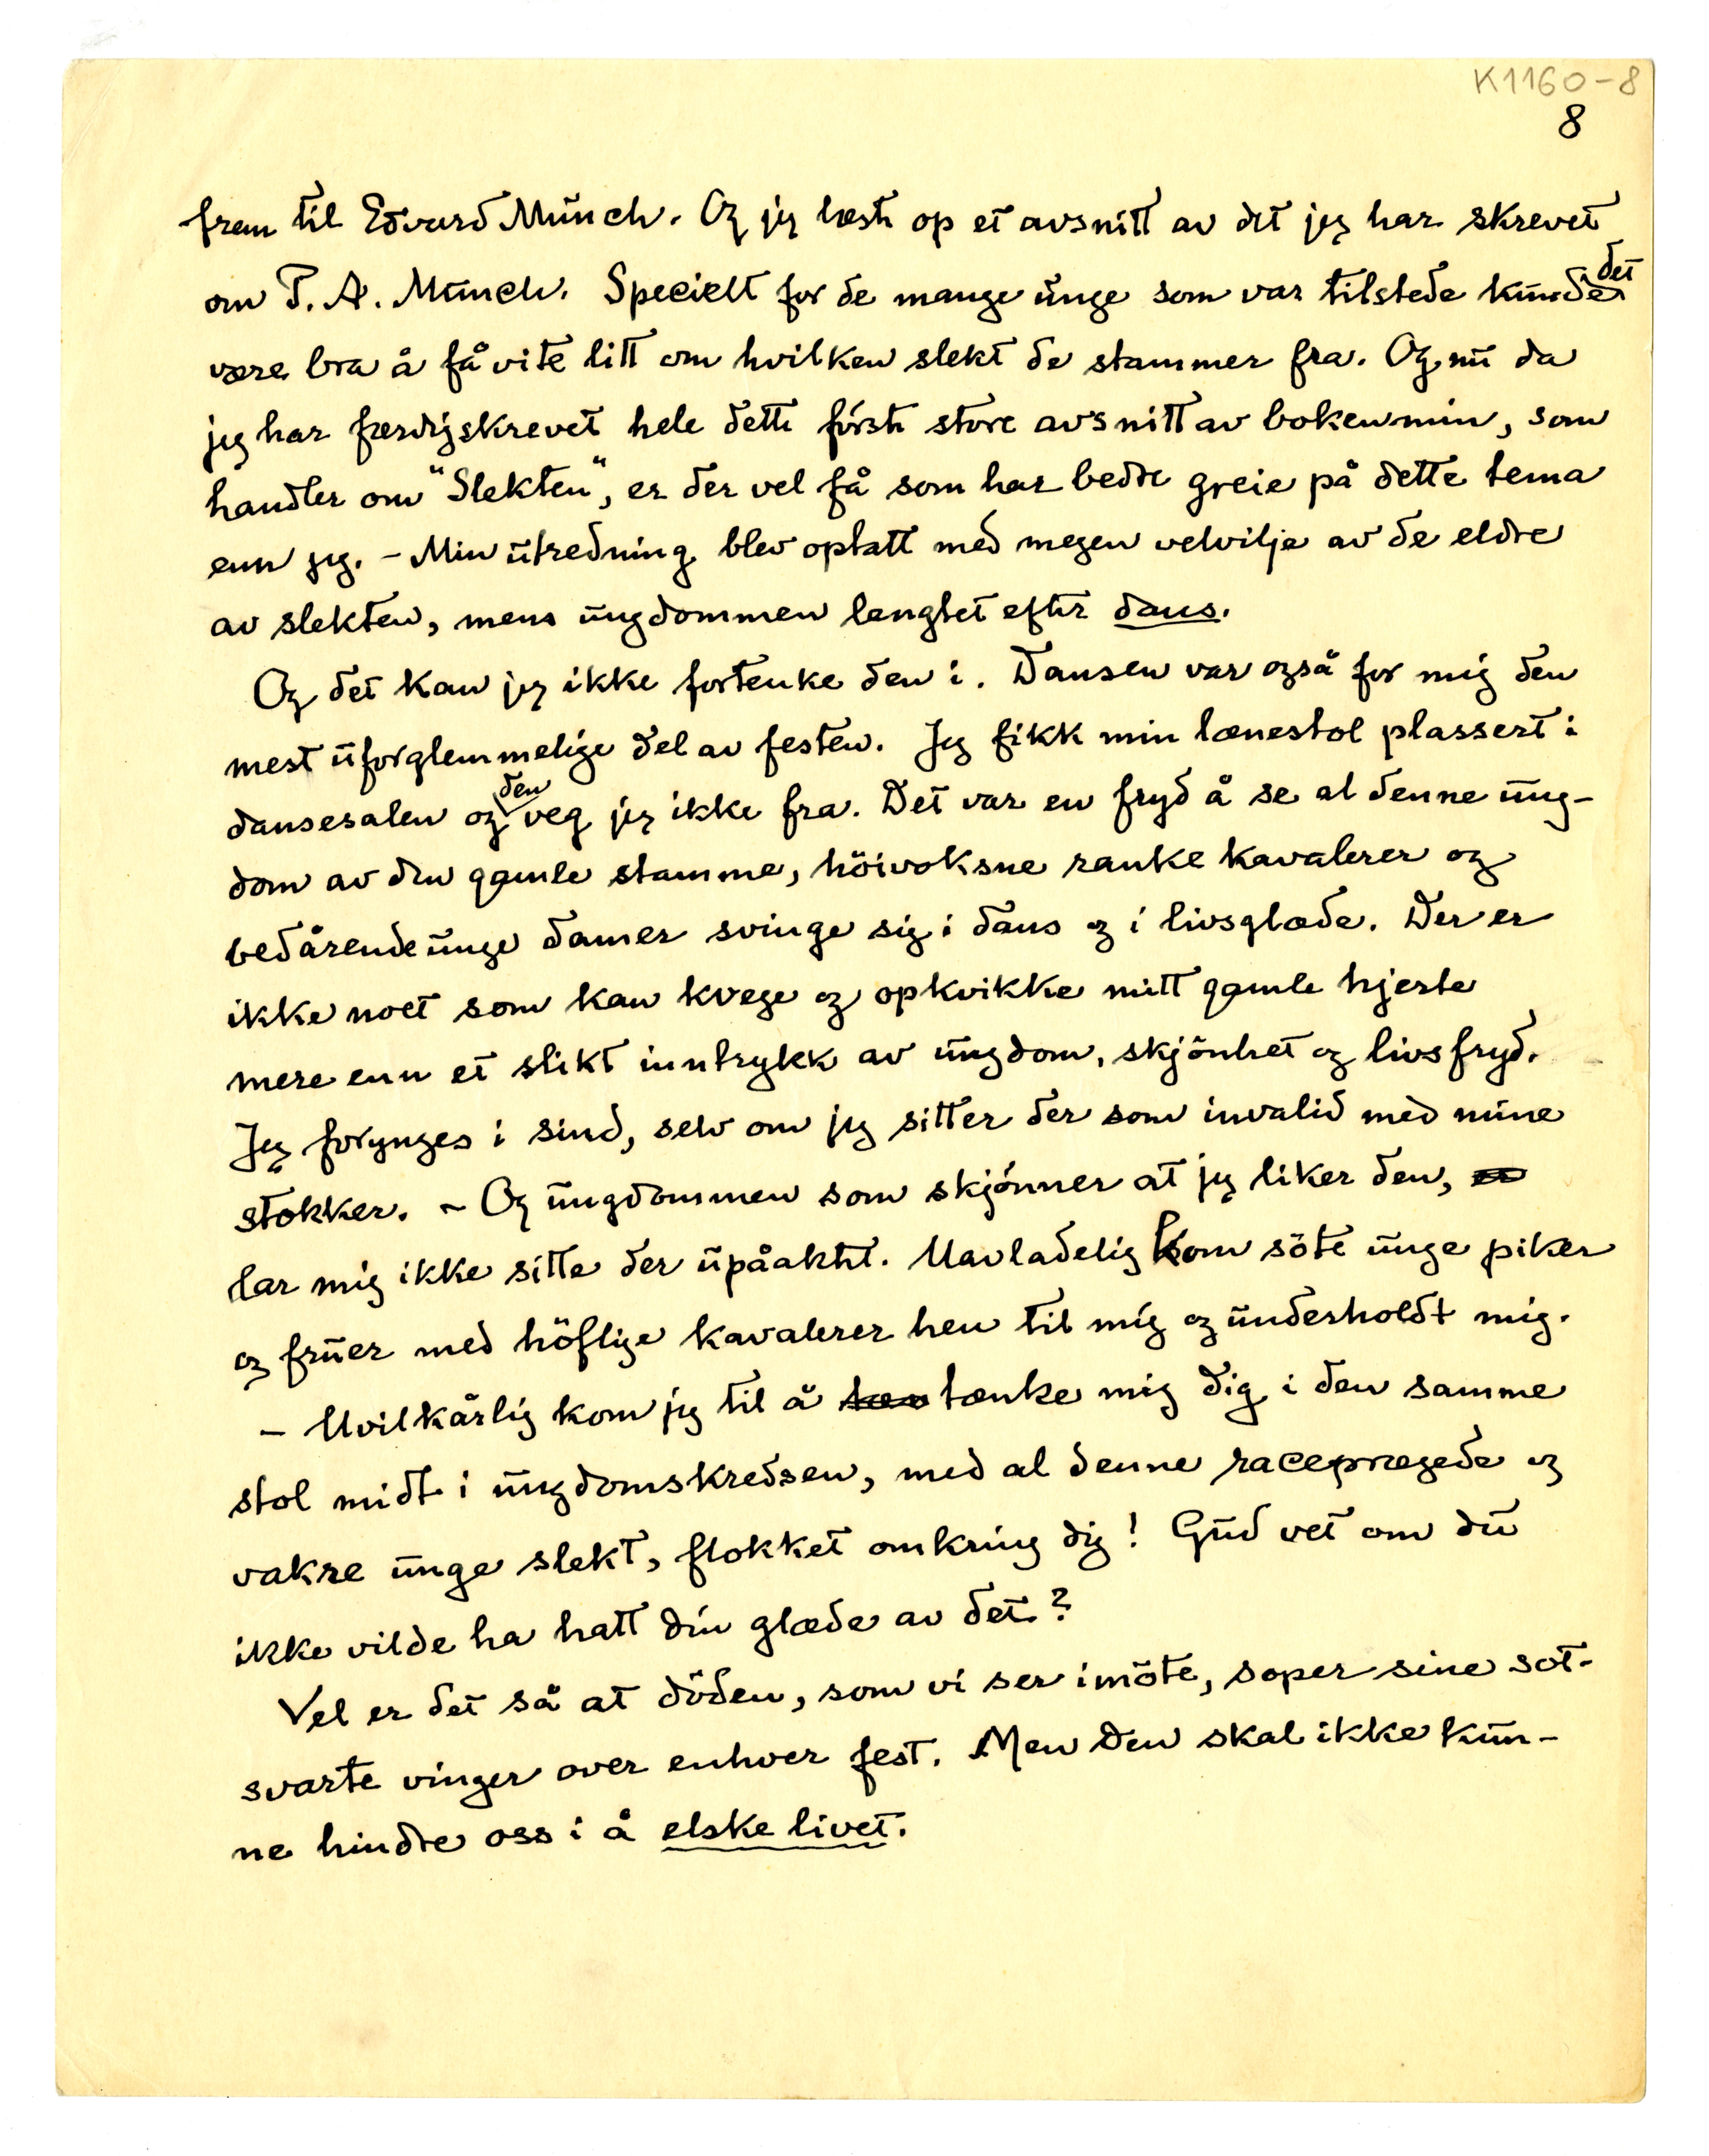 K1160-8
8
frem til Edvard Munch. Og jeg læste op et avsnitt av det jeg har skrevet
om P. A. Munch. Specielt for de mange unge som var tilstede kunde det
være bra å få vite litt om hvilken slekt de stammer fra. Og nu da
jeg har færdigskrevet hele dette første store avsnitt av boken min, som
handler om "Slekten", er der vel få som har bedre greie på dette tema
enn jeg. – Min utredning blev optatt med megen velvilje av de eldre
av slekten, mens ungdommen lengtet efter dans.
Og det kan jeg ikke fortenke den i. Dansen var også for mig den
mest uforglemmelige del av festen. Jeg fikk min lænestol plassert i
dansesalen og den veg jeg ikke fra. Det var en fryd å se al denne ung-
dom av den gamle stamme, höivoksne ranke kavalerer og
bedårende unge damer svinge sig i dans og i livsglæde. Der er
ikke noet som kan kvege og opkvikke mitt gamle hjerte
mere enn et slikt inntrykk av ungdom, skjönhet og livsfryd.
Jeg forynges i sind, selv om jeg sitter der som invalid med mine
stokker. – Og ungdommen som skjönner at jeg liker den,
lar mig ikke sitte der upåaktet. Uavladelig kom söte unge piker
og fruer med höflige kavalerer hen til mig og underholdt mig.
– Uvilkårlig kom jeg til å tænke mig dig i den samme
stol midt i ungdomskredsen, med al denneaceprægede og
vakre unge slekt, flokket omkring dig! Gud vet om du
ikke vilde ha hatt din glæde av det?
Vel er det så at döden, som vi ser imöte, soper sine sot-
svarte vinger over enhver fest. Men den skal ikke kun-
ne hindre oss i å elske livet.